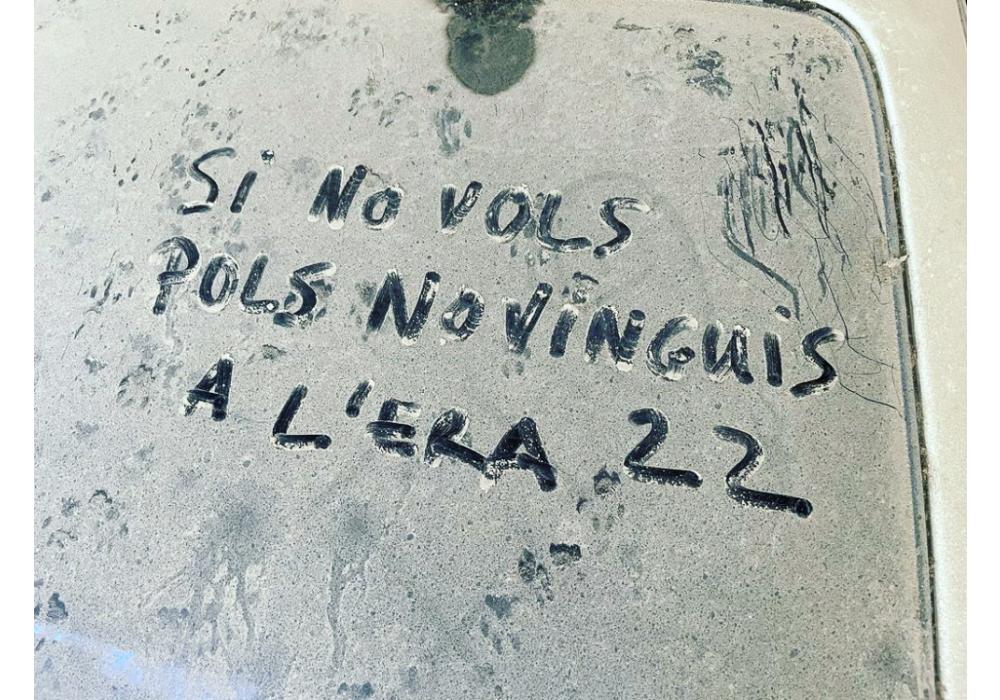 Si No VOLS
POLS No VINGUIS
A L'ERA 22